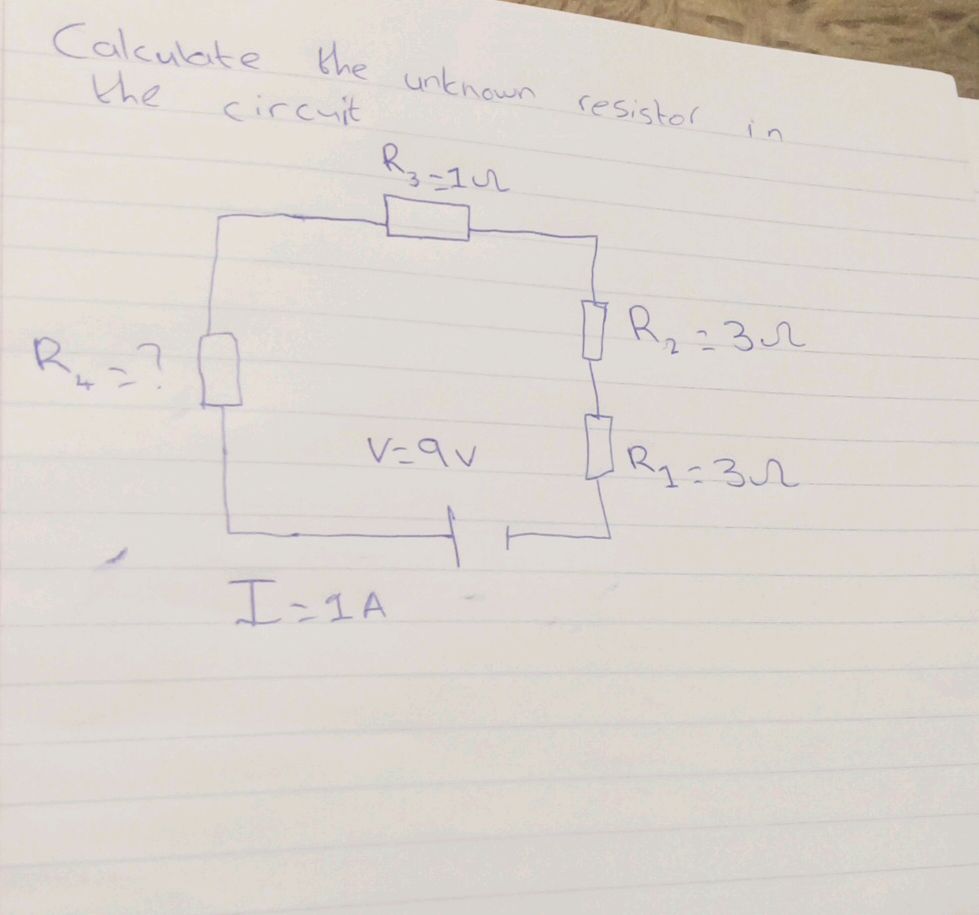 Calculate the unknown resistor in
the circuit
R₃=1Ω
R₂=3Ω
R₄=?
V=9V
R₁=3Ω
I=1A